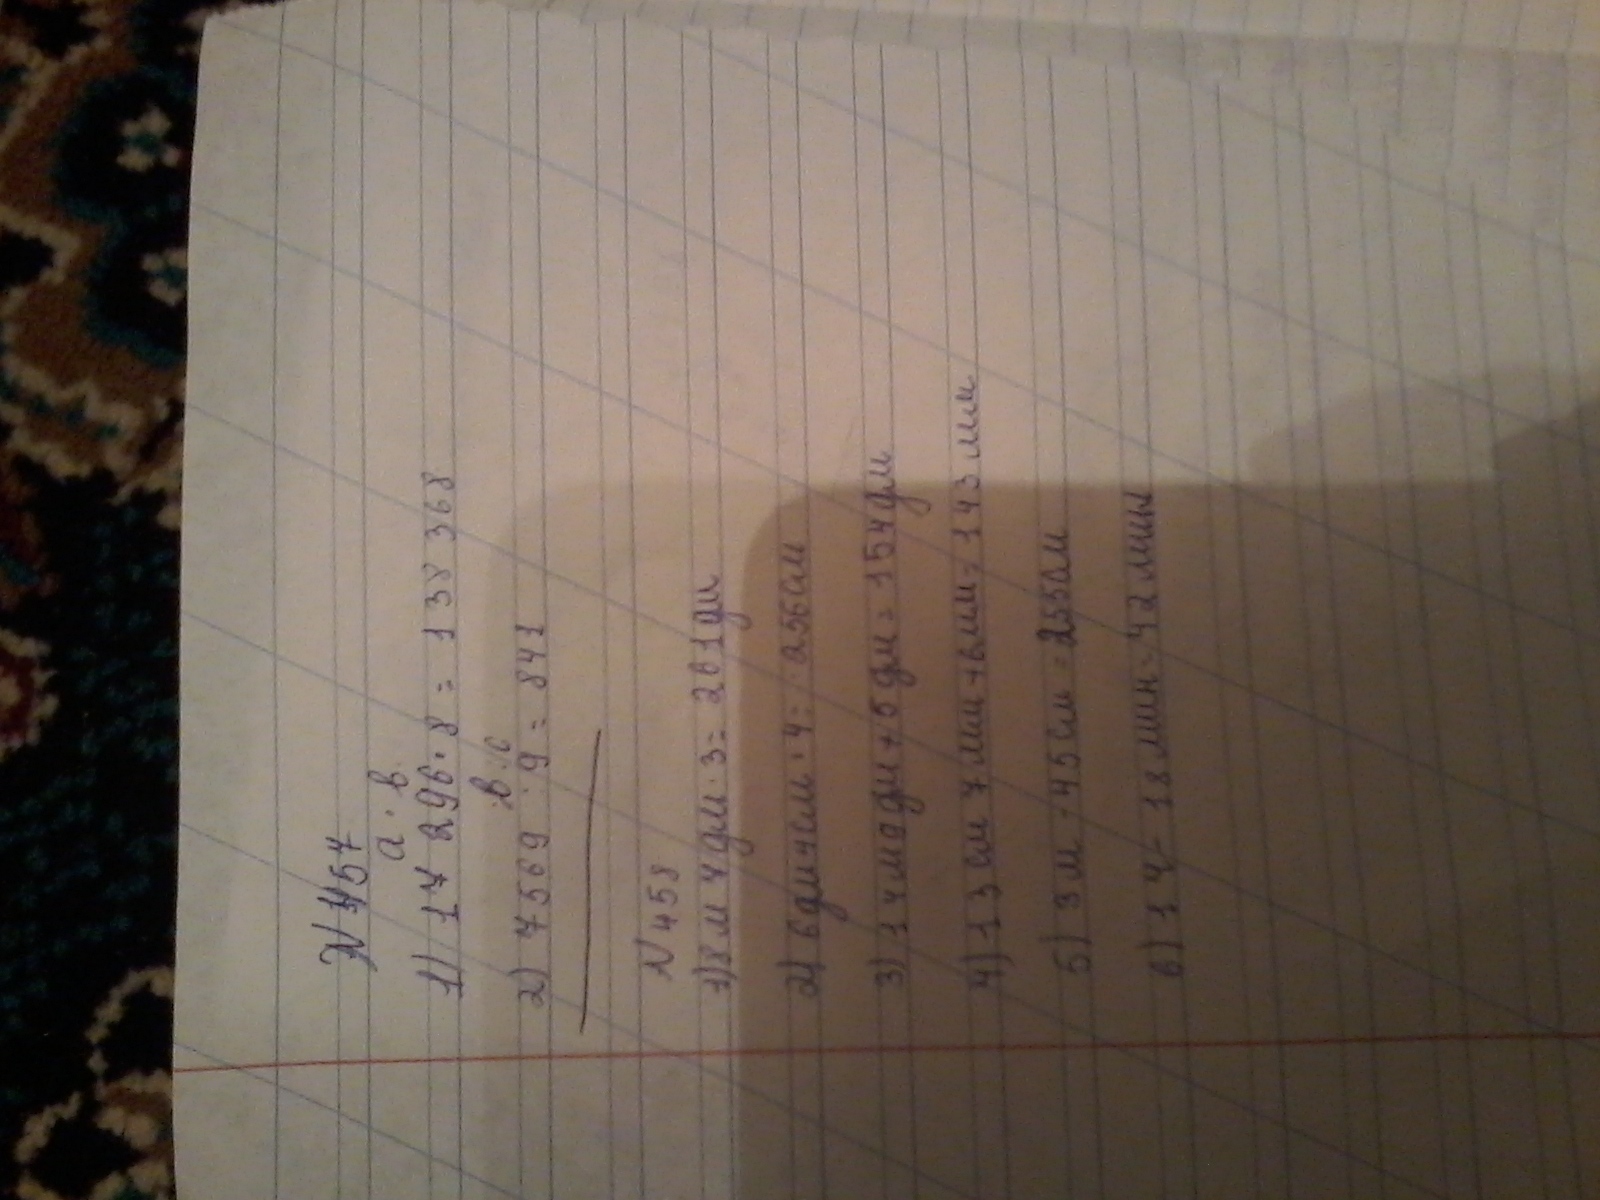 N 457
а · в
1) 17 296 · 8 = 138 368
в : с
2) 7569 : 9 = 841
N 458
1) 8м 7дм · 3 = 261дм
2) 6дм4см · 4 = 256см
3) 14м9дм+5дм=154дм
4) 13см 7мм+6мм=143мм
5) 3м - 45см = 255см
6) 1ч - 18мин=42мин